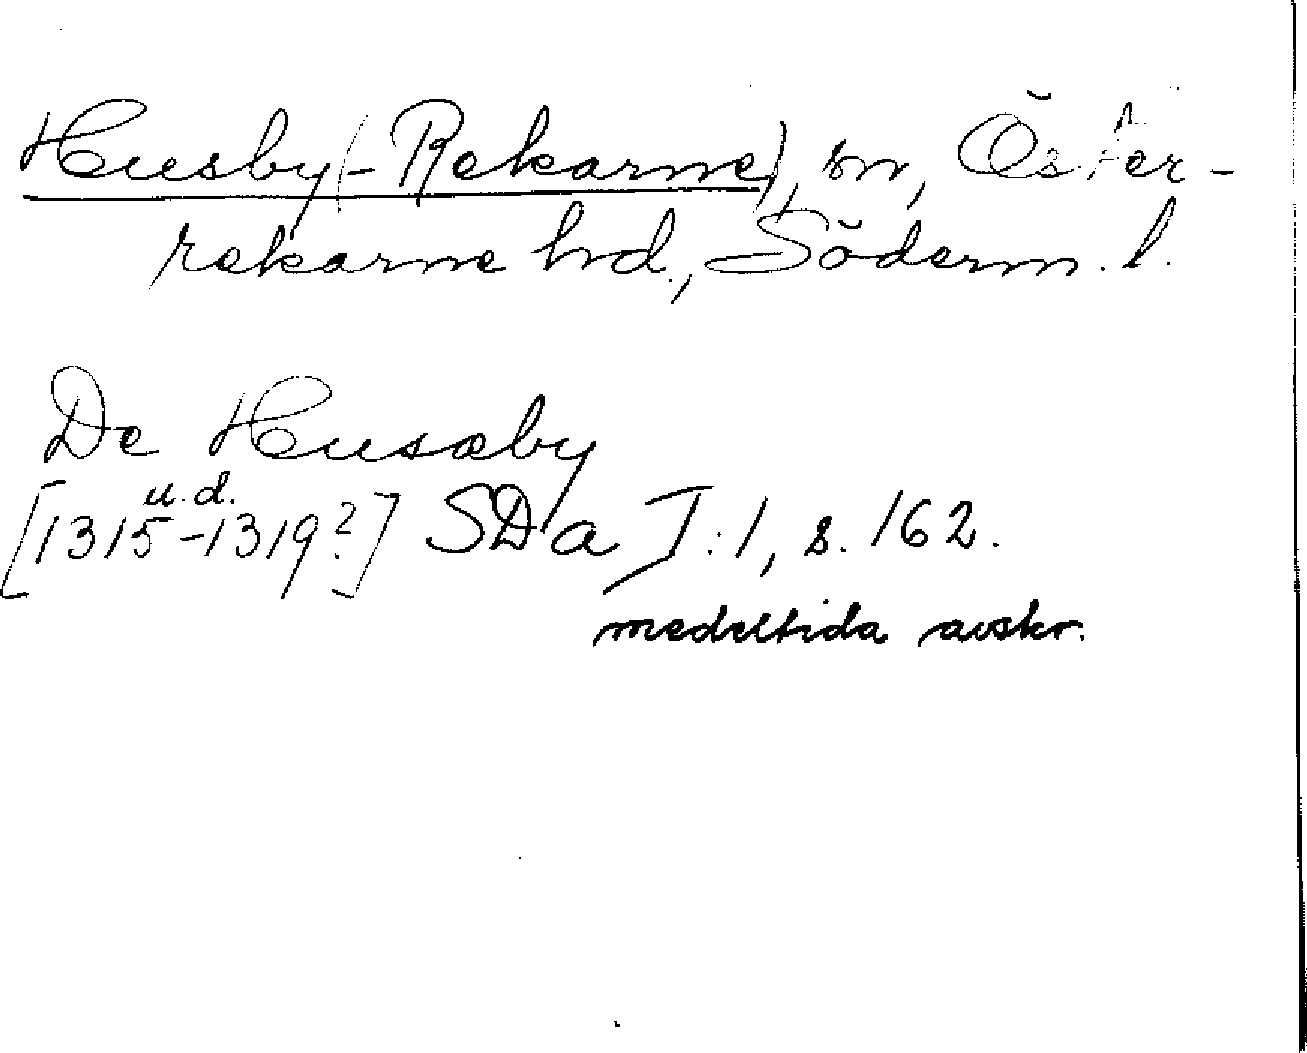 Husby(-Rekarne), sn, Öster-
rekarne hd., Söderm. l.
De Husæby
u. d.
[1315-1319?] SDa I:1, s. 162.
medeltida avskr.